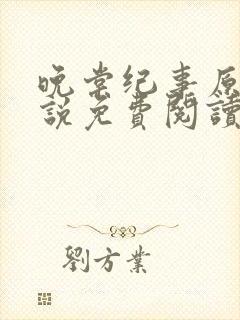 晚棠纪事原
说免費閱讀
劉方業